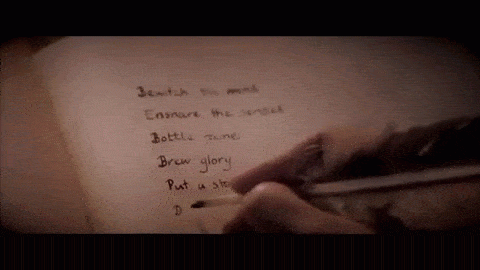 Bewitch the mind
Ensnare the senses
Bottle
Brew glory
Put a
D